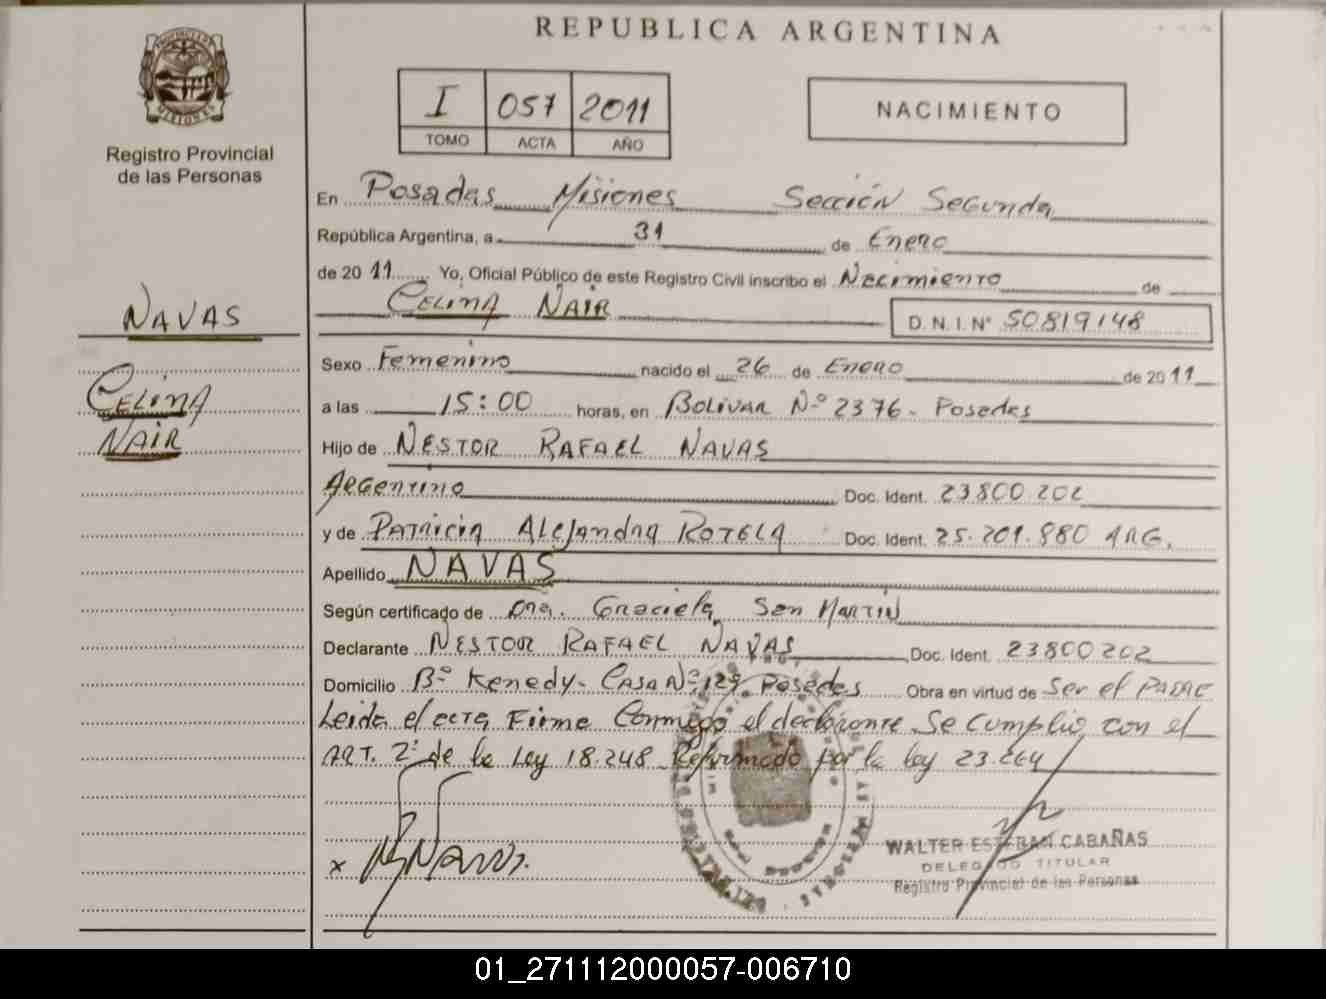 REPUBLICA ARGENTINA
PROVINCIA DE
MISIONES
Registro Provincial
de las Personas
I 057 2011
TOMO ACTA AÑO
NACIMIENTO
En Posadas Misiones Sección Segunda
República Argentina, a 31 de Enero
de 2011 Yo, Oficial Público de este Registro Civil inscribo el Nacimiento de
CELINA NAIR
D. N. I. N° 50819148
NAVAS
CELINA
NAIR
Sexo Femenino nacido el 26 de Enero de 2011
a las 15:00 horas, en Bolivar N° 2376 - Posadas
Hijo de NESTOR RAFAEL NAVAS
Argentino Doc. Ident. 23800202
y de Patricia Alejandra ROTELA Doc. Ident. 25.201.880 ARG.
Apellido NAVAS
Según certificado de Dra. Graciela San Martin
Declarante NESTOR RAFAEL NAVAS Doc. Ident. 23800202
Domicilio B° Kenedy - Casa N° 129 Posadas Obra en virtud de Ser el PADRE
Leida el acta Firme Conmigo el declarante Se cumplio con el
ART. 2° de la Ley 18.248 Reformado por la ley 23.264
x
WALTER ESTEBAN CABAÑAS
DELEGADO TITULAR
Registro Provincial de las Personas
01_271112000057-006710